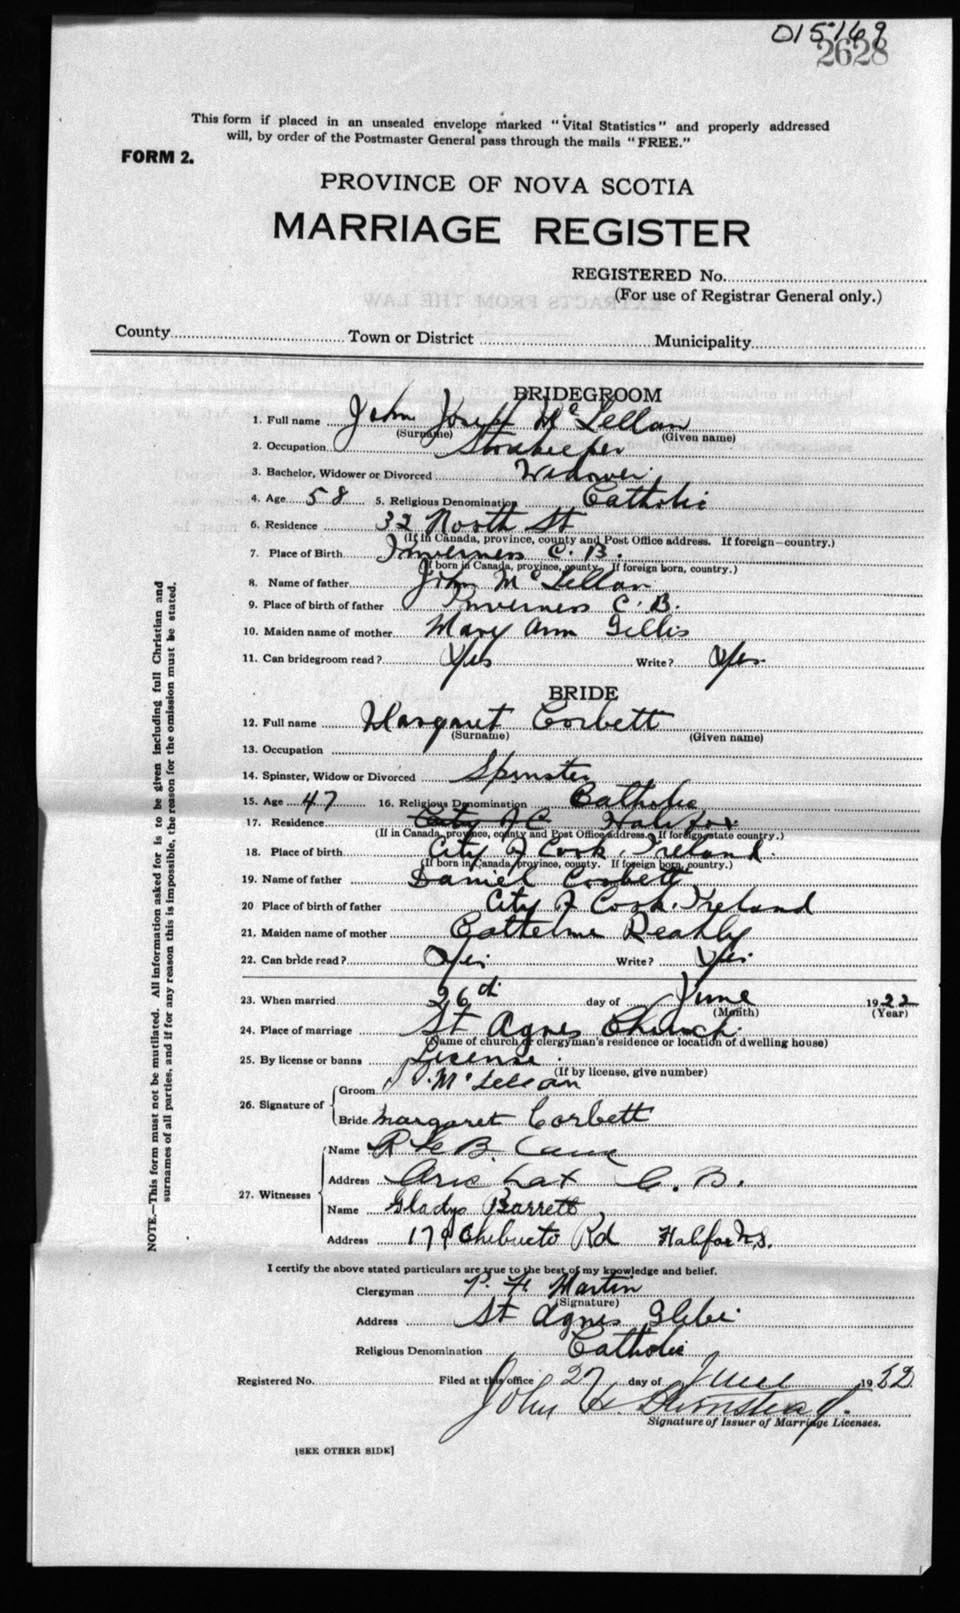 015169
2628
This form if placed in an unsealed envelope marked "Vital Statistics" and properly addressed
will, by order of the Postmaster General pass through the mails "FREE."
FORM 2.
PROVINCE OF NOVA SCOTIA
MARRIAGE REGISTER
REGISTERED No.
(For use of Registrar General only.)
County Town or District Municipality
BRIDEGROOM
1. Full name John Joseph McLellan
(Surname) (Given name)
2. Occupation Storekeeper
3. Bachelor, Widower or Divorced Widower
4. Age 58 5. Religious Denomination Catholic
6. Residence 32 North St
(If in Canada, province, county and Post Office address. If foreign—country.)
7. Place of Birth Inverness C. B.
(If born in Canada, province, county. If foreign born, country.)
8. Name of father John McLellan
9. Place of birth of father Inverness C. B.
10. Maiden name of mother Mary Ann Gillis
11. Can bridegroom read? Yes Write? Yes
BRIDE
12. Full name Margaret Corbett
(Surname) (Given name)
13. Occupation
14. Spinster, Widow or Divorced Spinster
15. Age 47 16. Religious Denomination Catholic
17. Residence City of C Halifax
(If in Canada, province, county and Post Office address. If foreign state country.)
18. Place of birth City of Cork, Ireland.
(If born in Canada, province, county. If foreign born, country.)
19. Name of father Daniel Corbett
20 Place of birth of father City of Cork, Ireland
21. Maiden name of mother
22. Can bride read? Yes Write? Yes
23. When married 26th day of June 1922
(Month) (Year)
24. Place of marriage St Agnes Church
(Name of church or clergyman's residence or location of dwelling house)
25. By license or banns License
(If by license, give number)
26. Signature of
Groom J. McLellan
Bride Margaret Corbett
27. Witnesses
Name
Address Arichat C. B.
Name Gladys Barrett
Address 179 Chebucto Rd Halifax N.S.
I certify the above stated particulars are true to the best of my knowledge and belief.
Clergyman P. H. Martin
(Signature)
Address St Agnes Glebe
Religious Denomination Catholic
Registered No. Filed at this office 27 day of June 1922
John H.
Signature of Issuer of Marriage Licenses.
[SEE OTHER SIDE]
NOTE.—This form must not be mutilated. All information asked for is to be given including full Christian and
surnames of all parties, and if for any reason this is impossible, the reason for the omission must be stated.